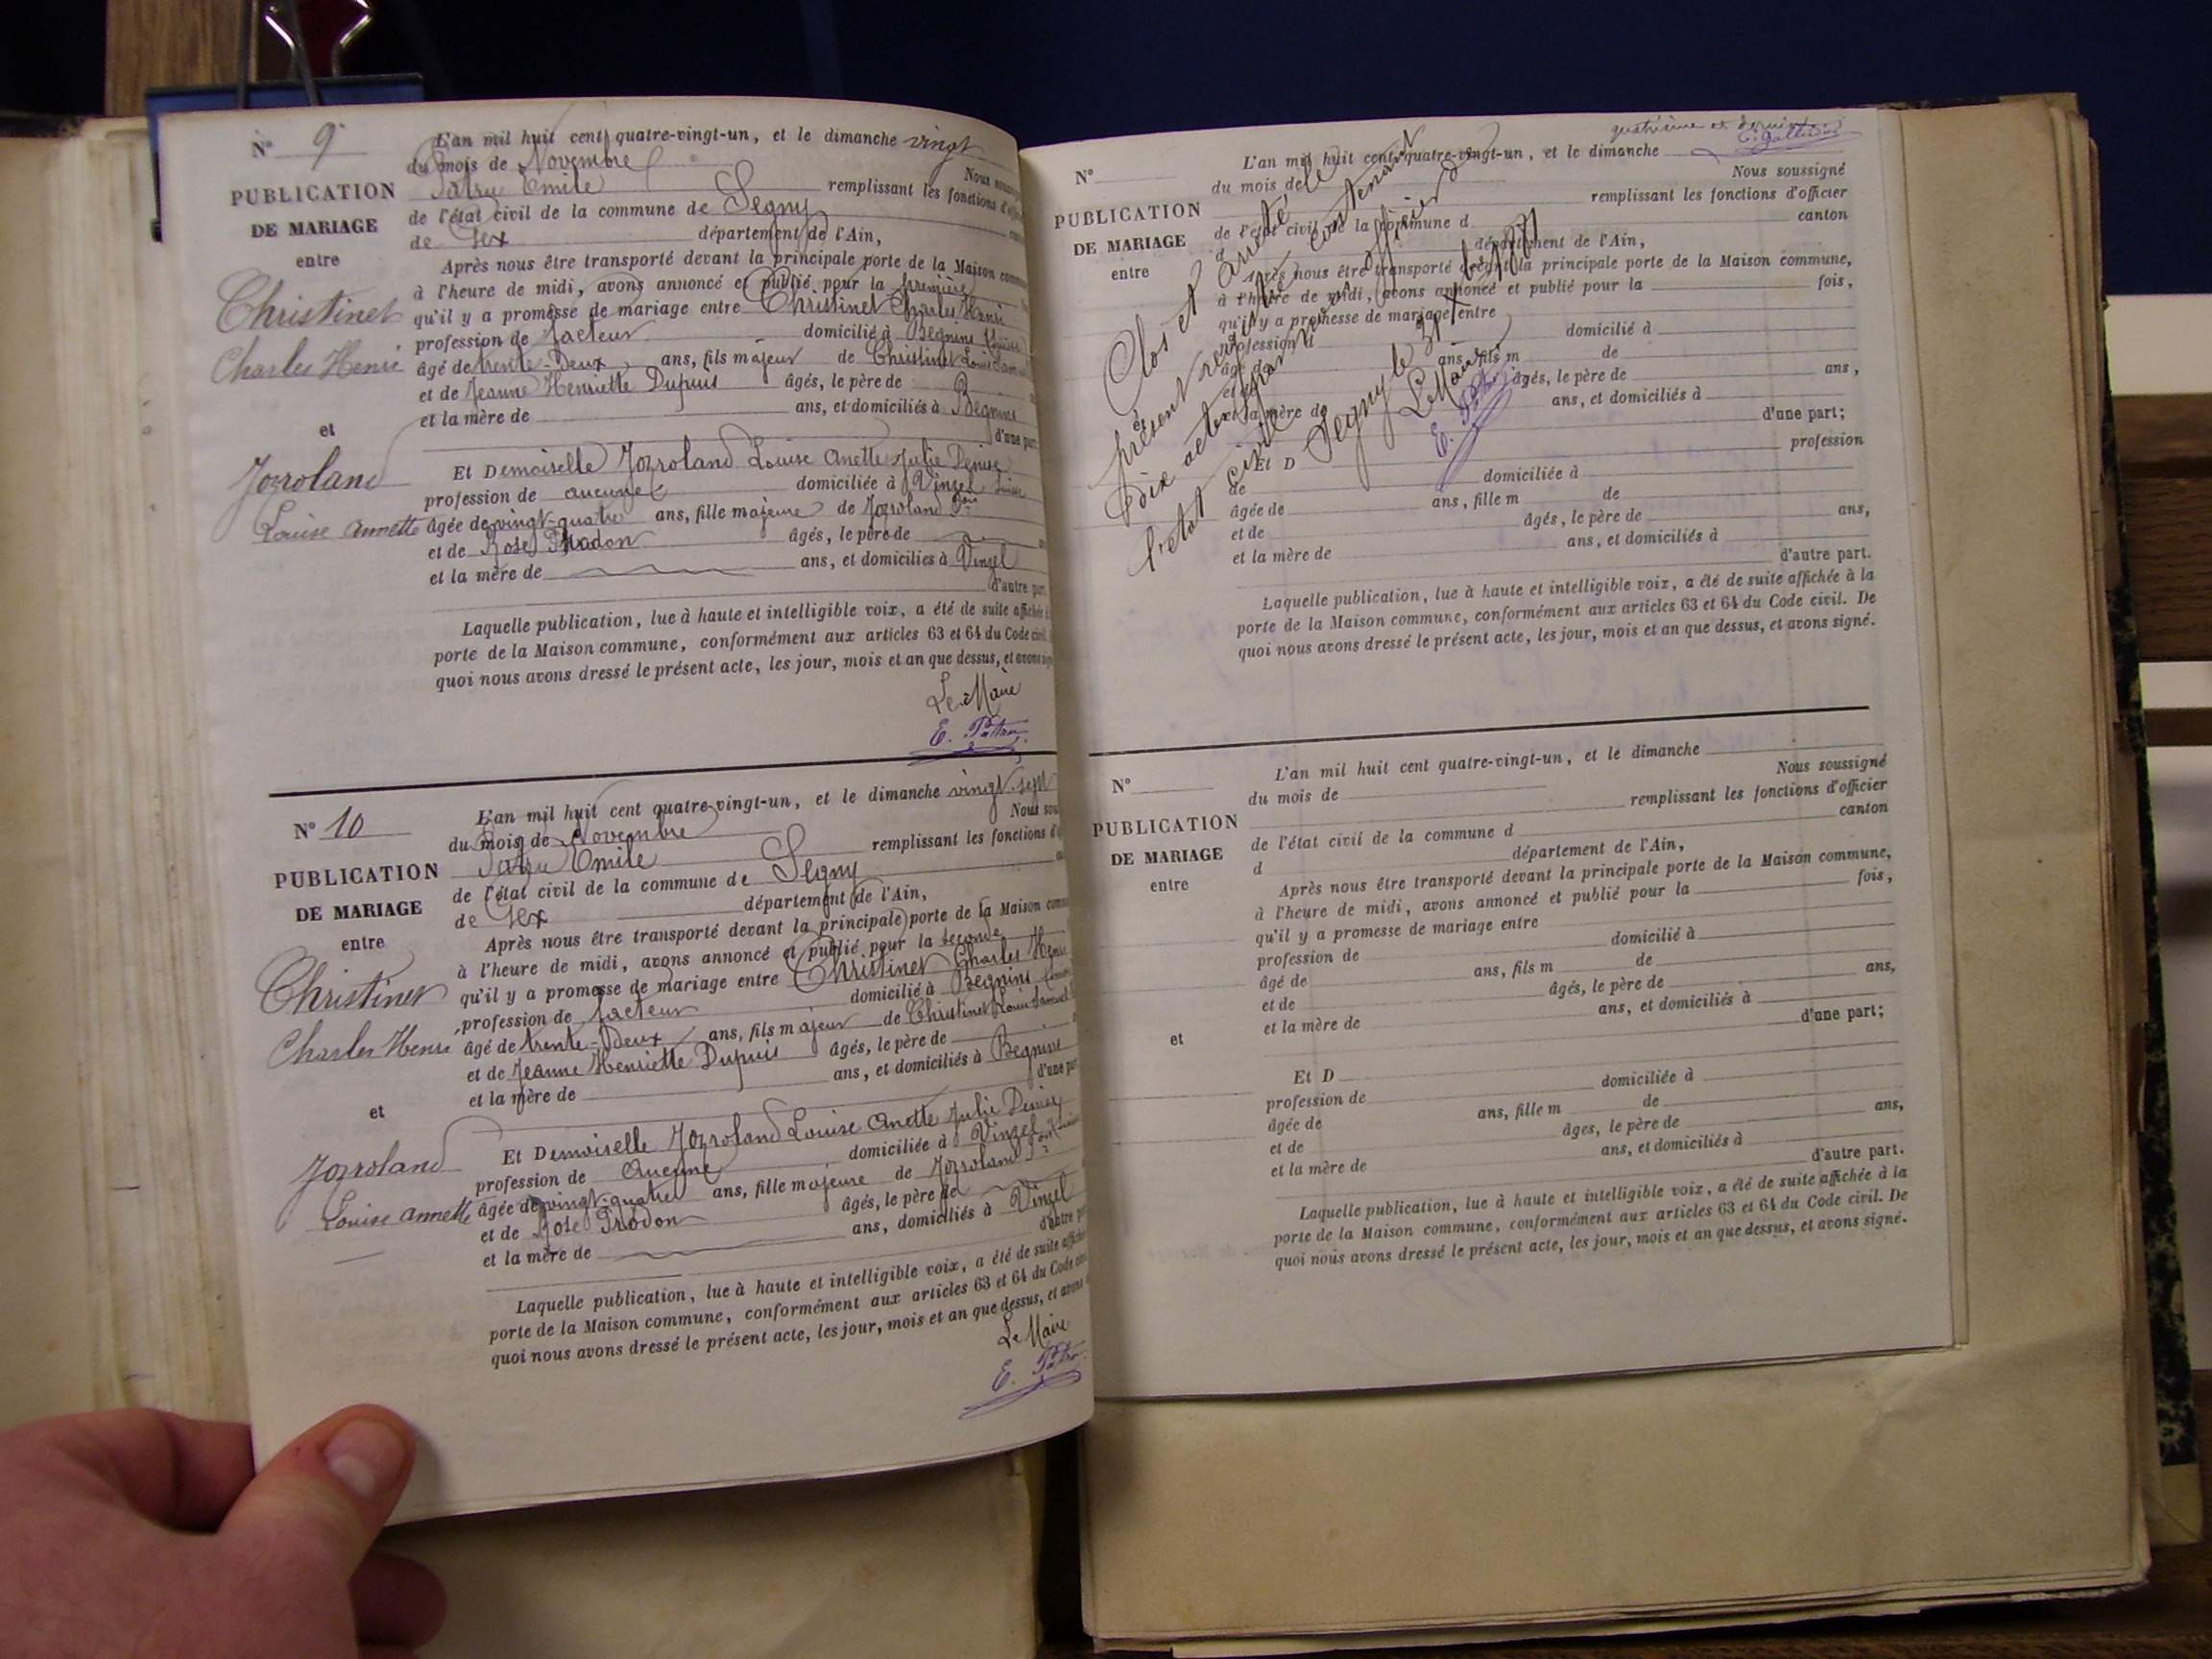 N° 9
PUBLICATION
DE MARIAGE
entre
Christinet
Charles Henri
et
Jozroland
Louise Annette
L'an mil huit cent quatre-vingt-un, et le dimanche vingt
du mois de Novembre Nous
Patru Emile remplissant les fonctions
de l'état civil de la commune de Segny
de Gex département de l'Ain,
Après nous être transporté devant la principale porte de la Maison
à l'heure de midi, avons annoncé et publié pour la première
qu'il y a promesse de mariage entre Christinet Charles Henri
profession de facteur domicilié à Begnins
âgé de trente-Deux ans, fils majeur de Christinet Louis
et de Jeanne Henriette Dupuis âgés, le père de
et la mère de ans, et domiciliés à Begnins
d'une
Et Demoiselle Jozroland Louise Anette Julie Denise
profession de aucune domiciliée à Vinzel
âgée de vingt-quatre ans, fille majeure de Jozroland
et de Rose Pradon âgés, le père de
et la mère de ans, et domiciliés à Vinzel
d'autre
Laquelle publication, lue à haute et intelligible voix, a été de suite
porte de la Maison commune, conformément aux articles 63 et 64 du Code
quoi nous avons dressé le présent acte, les jour, mois et an que dessus, et avons
Le Maire
E. Patru
N° 10
PUBLICATION
DE MARIAGE
entre
Christinet
Charles Henri
et
Jozroland
Louise Annette
L'an mil huit cent quatre-vingt-un, et le dimanche vingt-sept
du mois de Novembre Nous
Patru Emile remplissant les fonctions
de l'état civil de la commune de Segny
de Gex département de l'Ain,
Après nous être transporté devant la principale porte de la Maison
à l'heure de midi, avons annoncé et publié pour la seconde
qu'il y a promesse de mariage entre Christinet Charles Henri
profession de facteur domicilié à Begnins
âgé de trente-Deux ans, fils majeur de Christinet Louis Samuel
et de Jeanne Henriette Dupuis âgés, le père de
et la mère de ans, et domiciliés à Begnins
d'une
Et Demoiselle Jozroland Louise Anette Julie Denise
profession de Aucune domiciliée à Vinzel
âgée de vingt-quatre ans, fille majeure de Jozroland
et de Rose Pradon âgés, le père de
et la mère de ans, domiciliés à Vinzel
d'autre
Laquelle publication, lue à haute et intelligible voix, a été de suite
porte de la Maison commune, conformément aux articles 63 et 64 du Code
quoi nous avons dressé le présent acte, les jour, mois et an que dessus, et avons
Le Maire
E. Patru
quatrième et dernier
N°
PUBLICATION
DE MARIAGE
entre
L'an mil huit cent quatre-vingt-un, et le dimanche
du mois de Nous soussigné
remplissant les fonctions d'officier
de l'état civil de la commune d canton
d département de l'Ain,
Après nous être transporté devant la principale porte de la Maison commune,
à l'heure de midi, avons annoncé et publié pour la fois,
qu'il y a promesse de mariage entre
profession d domicilié à
âgé de ans, fils m de
et de âgés, le père de ans,
et la mère de ans, et domiciliés à
d'une part;
Et D profession
de domiciliée à
âgée de ans, fille m de
et de âgés, le père de ans,
et la mère de ans, et domiciliés à
d'autre part.
Laquelle publication, lue à haute et intelligible voix, a été de suite affichée à la
porte de la Maison commune, conformément aux articles 63 et 64 du Code civil. De
quoi nous avons dressé le présent acte, les jour, mois et an que dessus, et avons signé.
Clos et arrêté le
présent registre contenant
dix actes officier de
l'état civil
Segny le 31 Xbre 1881
Le Maire
E. Patru
N°
PUBLICATION
DE MARIAGE
entre
et
L'an mil huit cent quatre-vingt-un, et le dimanche
du mois de Nous soussigné
remplissant les fonctions d'officier
de l'état civil de la commune d canton
d département de l'Ain,
Après nous être transporté devant la principale porte de la Maison commune,
à l'heure de midi, avons annoncé et publié pour la fois,
qu'il y a promesse de mariage entre
profession de domicilié à
âgé de ans, fils m de
et de âgés, le père de ans,
et la mère de ans, et domiciliés à
d'une part;
Et D
profession de domiciliée à
âgée de ans, fille m de
et de âges, le père de ans,
et la mère de ans, et domiciliés à
d'autre part.
Laquelle publication, lue à haute et intelligible voix, a été de suite affichée à la
porte de la Maison commune, conformément aux articles 63 et 64 du Code civil. De
quoi nous avons dressé le présent acte, les jour, mois et an que dessus, et avons signé.